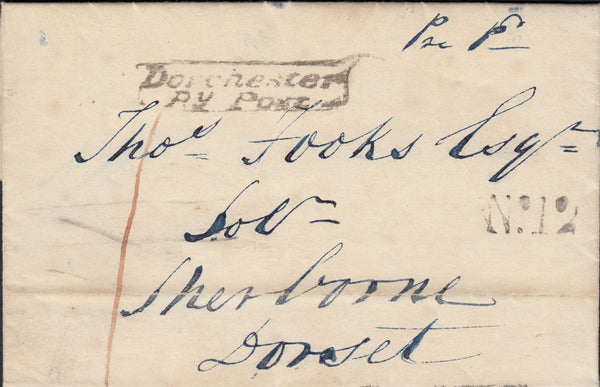 Pre Pd
Dorchester
Py Post
Thos Fooks Esqr
Solr
Sherborne
Dorset
No.12